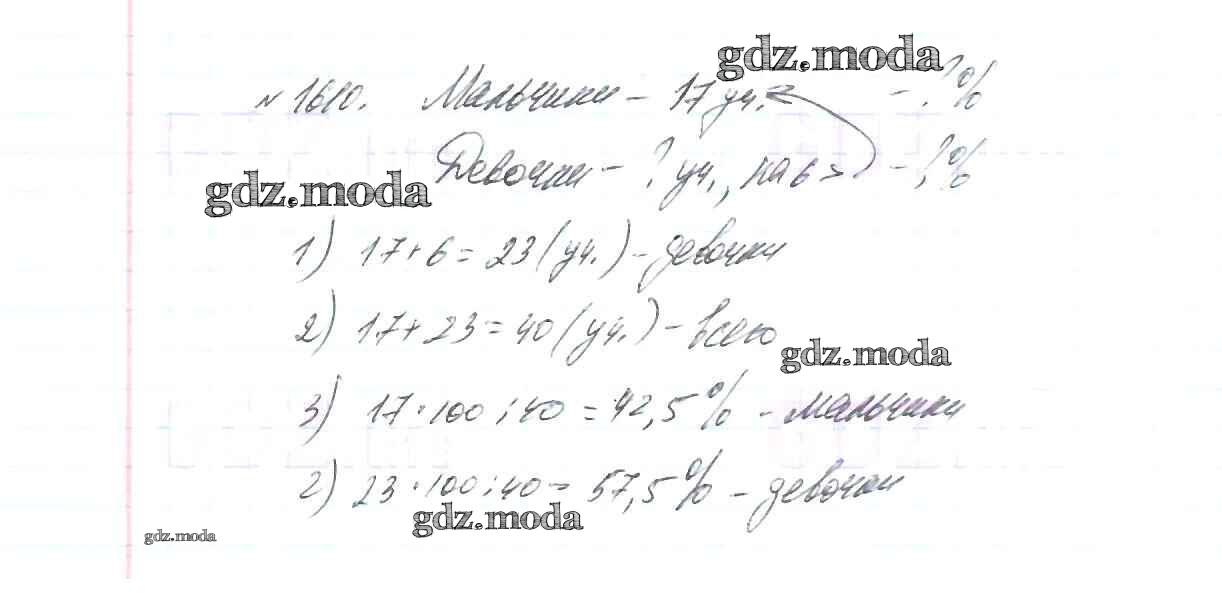 gdz.moda
№ 1610. Мальчики – 17 уч. – ? %
Девочки – ? уч., на 6 > – ? %
gdz.moda
1) 17 + 6 = 23 (уч.) – девочки
2) 17 + 23 = 40 (уч.) – всего
gdz.moda
3) 17 · 100 : 40 = 42,5 % – мальчики
2) 23 · 100 : 40 = 57,5 % – девочки
gdz.moda
gdz.moda